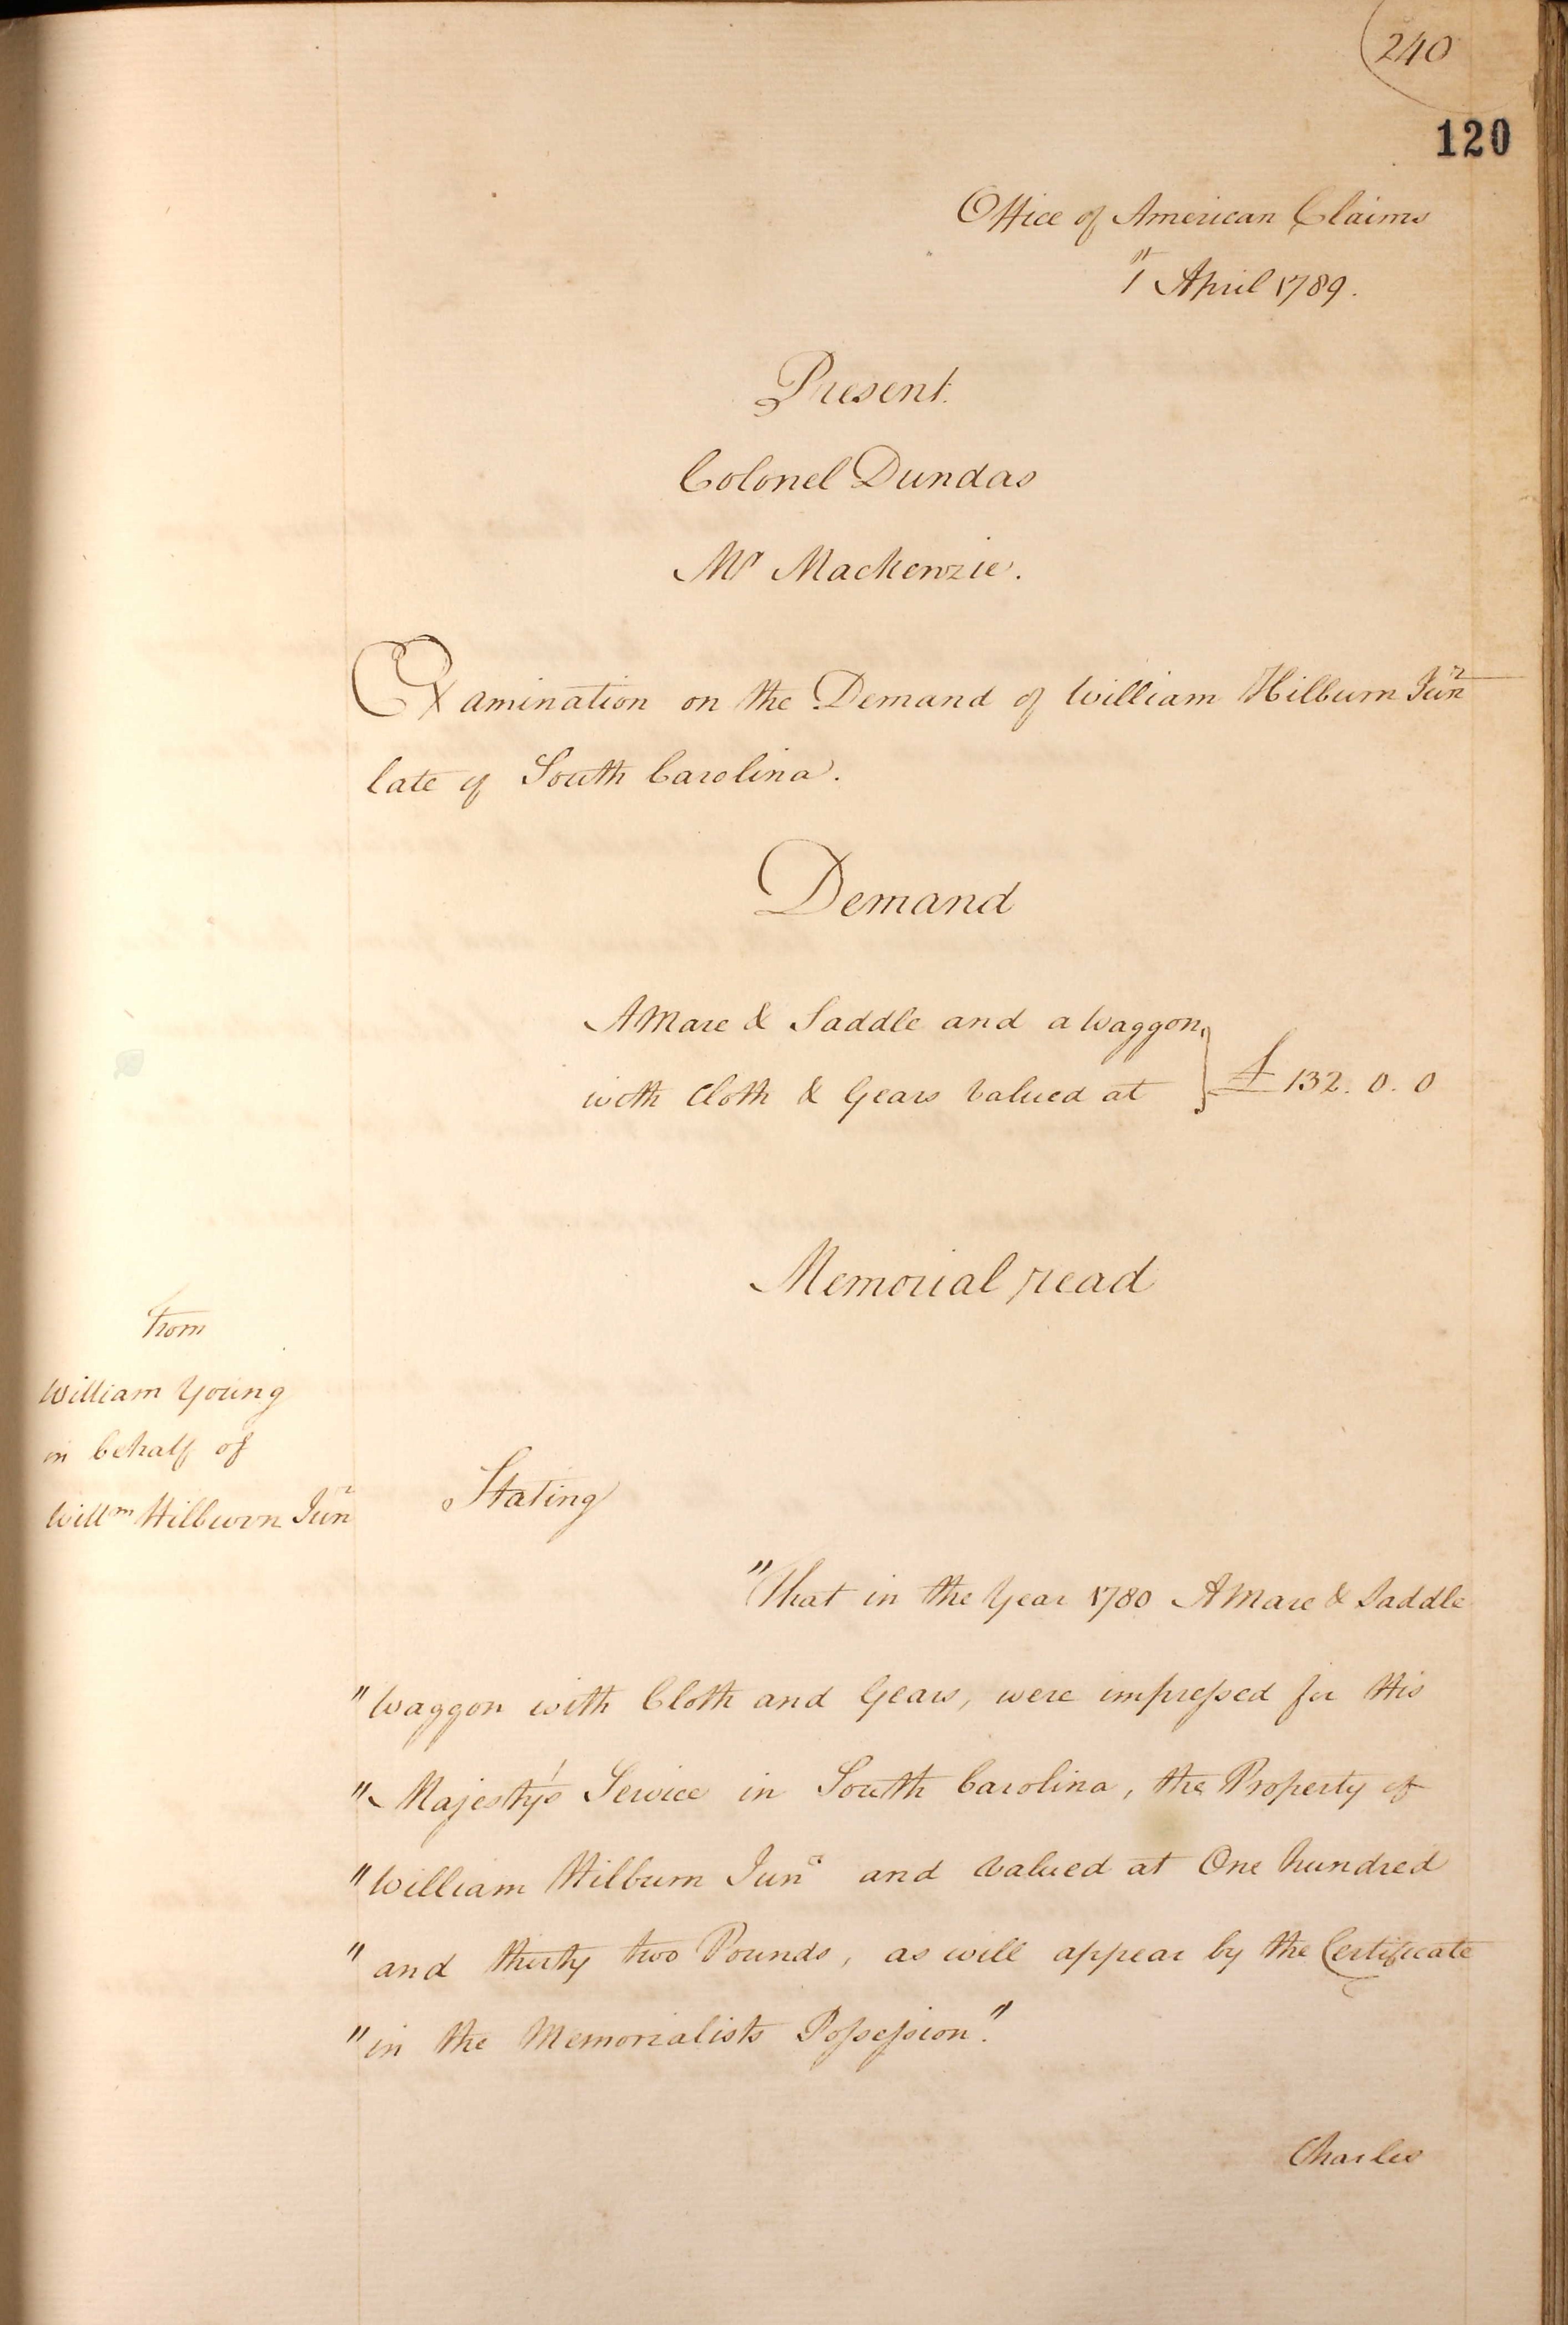 240
120
Office of American Claims
1st April 1789.
Present.
Colonel Dundas
Mr Mackenzie.
Examination on the Demand of William Hilburn Junr
late of South Carolina.
Demand
A Mare & Saddle and a Waggon,
with Cloth & Gears valued at } £132. 0. 0
Memorial read
From
William Young
in behalf of
Willm Hilburn Junr
Stating
"That in the Year 1780 A Mare & Saddle
"Waggon with Cloth and Gears, were impressed for His
"Majesty's Service in South Carolina, the Property of
"William Hilburn Junr and valued at One hundred
"and thirty two Pounds, as will appear by the Certificate
"in the Memorialists Possession."
Charles